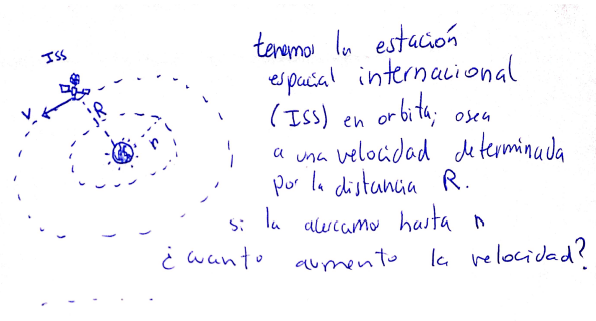 ISS
V
R
r
tenemos la estación
espacial internacional
(ISS) en orbita; osea
a una velocidad determinada
por la distancia R.
si la acercamo hasta r
¿cuanto aumento la velocidad?